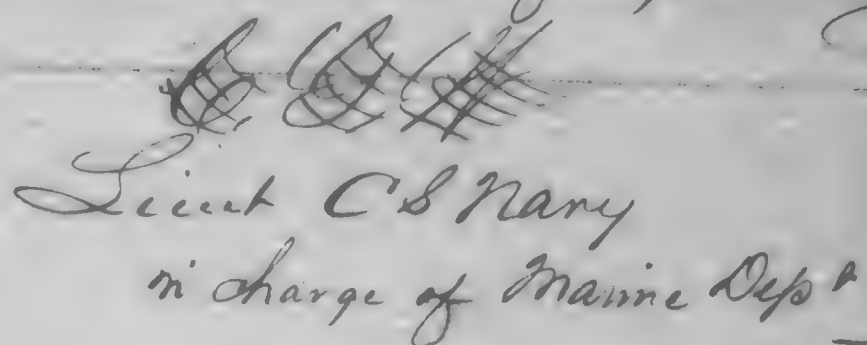 Lieut C S Navy
in charge of Marine Dept